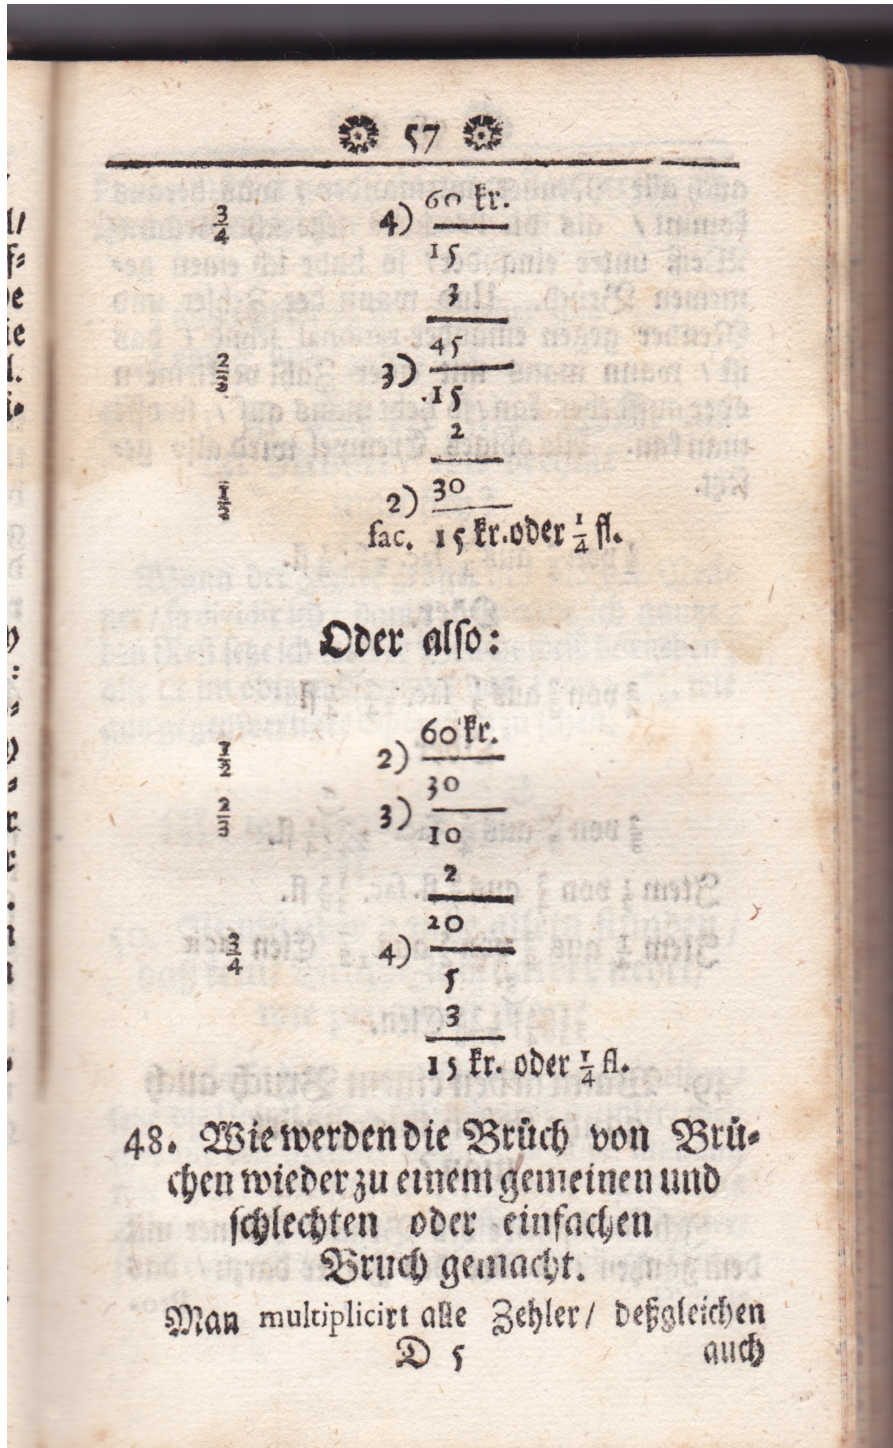 57
3/4 4) 60 kr.
15
3
45
2/3 3) 15
2
1/2 2) 30
fac. 15 kr. oder 1/4 fl.
Oder also:
60 kr.
1/2 2)
30
2/3 3)
10
2
20
3/4 4)
5
3
15 kr. oder 1/4 fl.
48. Wie werden die Brüch von Brü-
chen wieder zu einem gemeinen und
schlechten oder einfachen
Bruch gemacht.
Man multiplicirt alle Zehler/ deßgleichen
D 5 auch